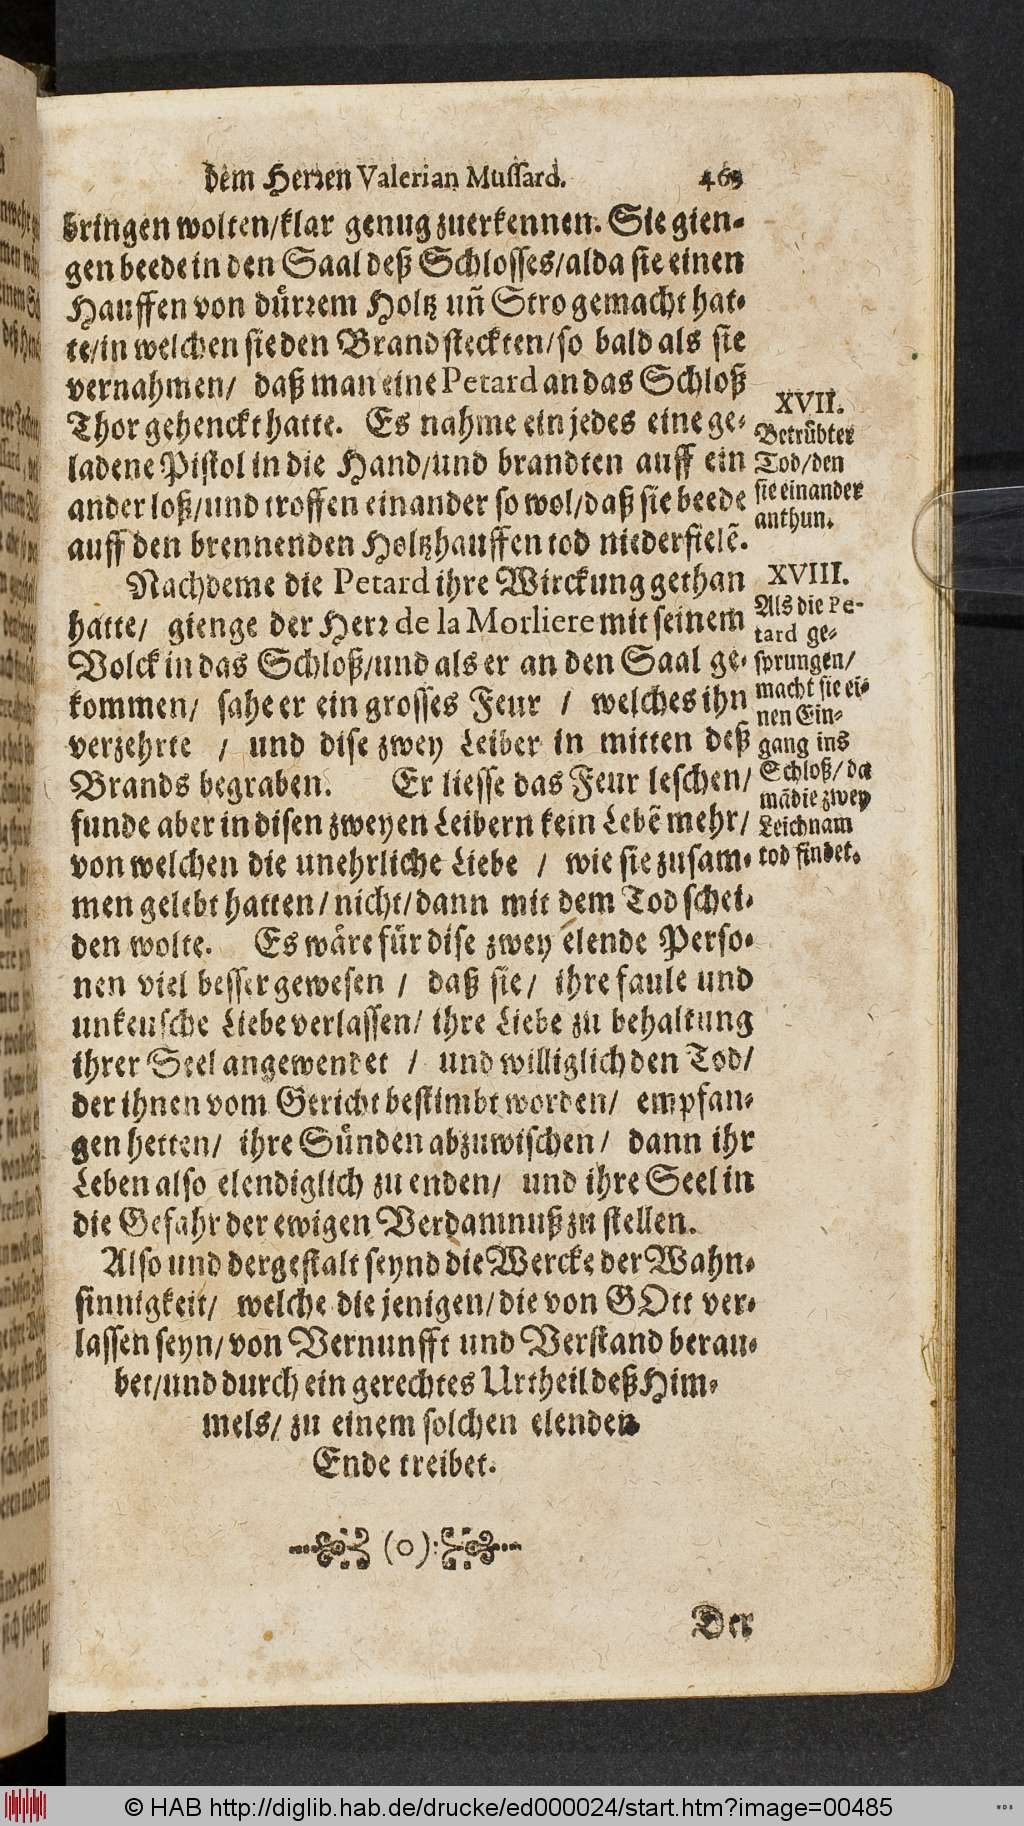 dem Herren Valerian Mussard. 469
bringen wolten/klar genug zuerkennen. Sie gien-
gen beede in den Saal deß Schlosses/alda sie einen
Hauffen von dürrem Holtz uñ Stro gemacht hat-
te/in welchen sie den Brand steckten/so bald als sie
vernahmen/ daß man eine Petard an das Schloß
Thor gehenckt hatte. Es nahme ein jedes eine ge-
ladene Pistol in die Hand/und brandten auff ein
ander loß/und troffen einander so wol/daß sie beede
auff den brennenden Holtzhauffen tod niederfielẽ.
XVII.
Betrübter
Tod/den
sie einander
anthun.
Nachdeme die Petard ihre Wirckung gethan
hatte/ gienge der Herr de la Morliere mit seinem
Volck in das Schloß/und als er an den Saal ge-
kommen/ sahe er ein grosses Feur / welches ihn
verzehrte / und dise zwey Leiber in mitten deß
Brands begraben. Er liesse das Feur leschen/
funde aber in disen zweyen Leibern kein Lebẽ mehr/
von welchen die unehrliche Liebe / wie sie zusam-
men gelebt hatten/nicht/dann mit dem Tod schei-
den wolte. Es wäre für dise zwey elende Perso-
nen viel besser gewesen / daß sie/ ihre faule und
unkeusche Liebe verlassen/ ihre Liebe zu behaltung
ihrer Seel angewendet / und williglich den Tod/
der ihnen vom Gericht bestimbt worden/ empfan-
gen hetten/ ihre Sünden abzuwischen/ dann ihr
Leben also elendiglich zu enden/ und ihre Seel in
die Gefahr der ewigen Verdamnuß zu stellen.
XVIII.
Als die Pe-
tard ge-
sprungen/
macht sie ei-
nen Ein-
gang ins
Schloß/da
mã die zwey
Leichnam
tod findet.
Also und dergestalt seynd die Wercke der Wahn-
sinnigkeit/ welche die jenigen/die von GOtt ver-
lassen seyn/von Vernunfft und Verstand berau-
bet/und durch ein gerechtes Urtheil deß Him-
mels/ zu einem solchen elenden
Ende treibet.
(o):
Der
© HAB http://diglib.hab.de/drucke/ed000024/start.htm?image=00485